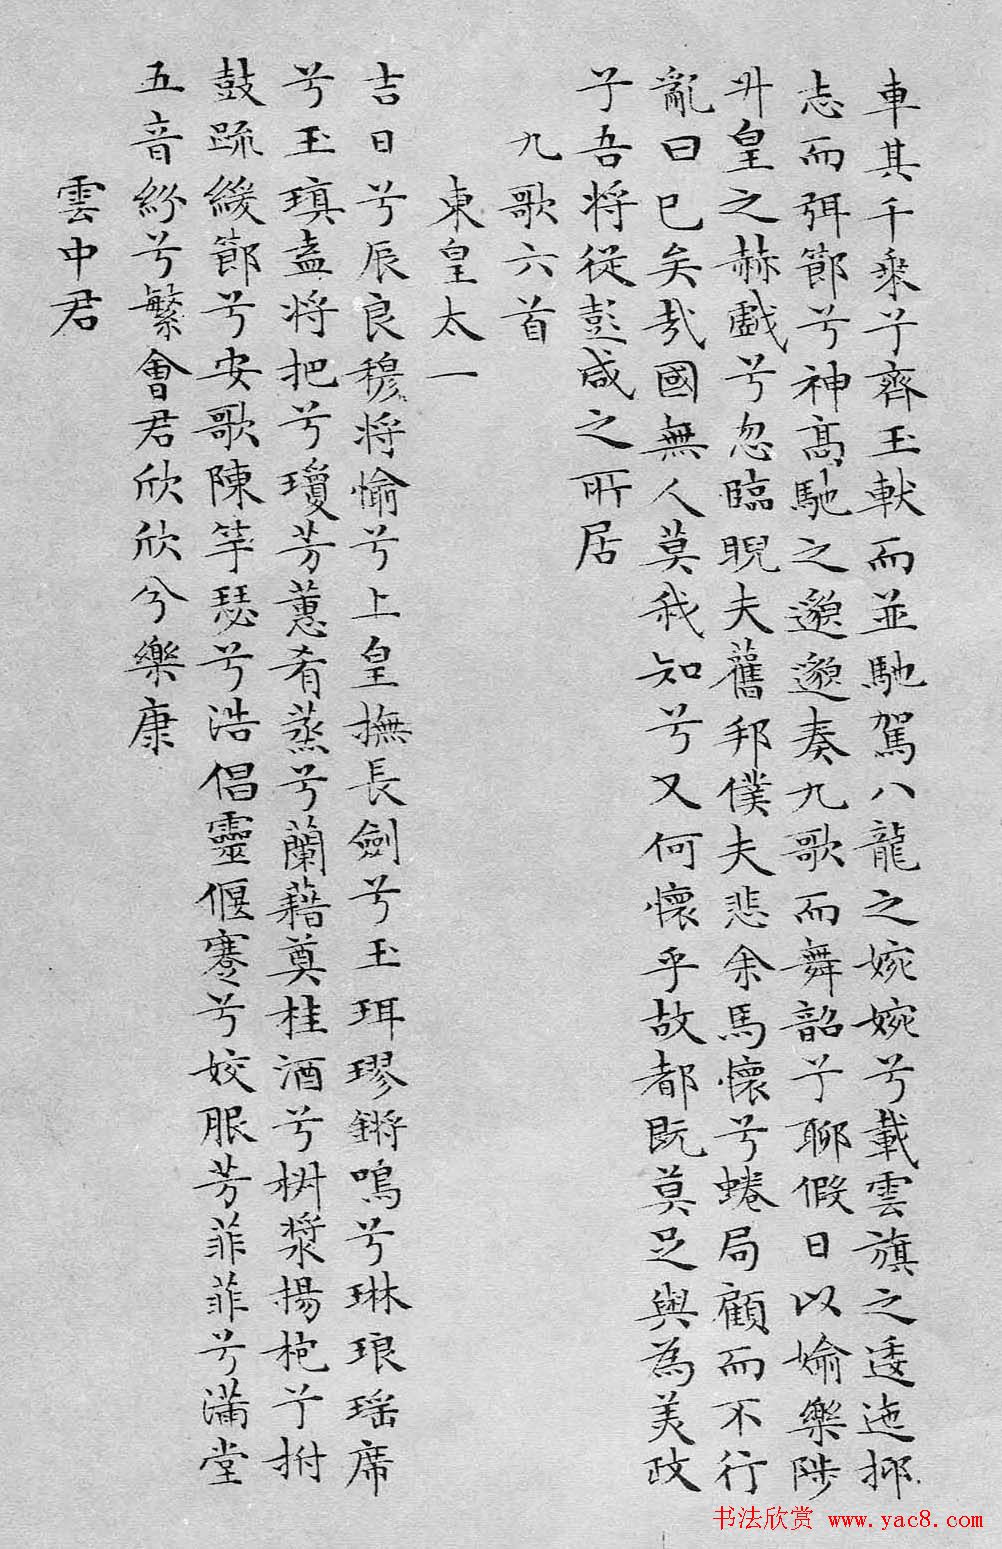 車其千乘兮齊玉軑而並馳駕八龍之婉婉兮載雲旗之逶迤抑
志而弭節兮神高馳之邈邈奏九歌而舞韶兮聊假日以媮樂陟
升皇之赫戲兮忽臨睨夫舊邦僕夫悲余馬懷兮蜷局顧而不行
亂曰已矣哉國無人莫我知兮又何懷乎故都既莫足與為美政
兮吾將從彭咸之所居
九歌六首
東皇太一
吉日兮辰良穆將愉兮上皇撫長劍兮玉珥璆鏘鳴兮琳琅瑤席
兮玉瑱盍將把兮瓊芳蕙肴蒸兮蘭藉奠桂酒兮椒漿揚枹兮拊
鼓疏緩節兮安歌陳竽瑟兮浩倡靈偃蹇兮姣服芳菲菲兮滿堂
五音紛兮繁會君欣欣兮樂康
雲中君
书法欣赏 www.yac8.com